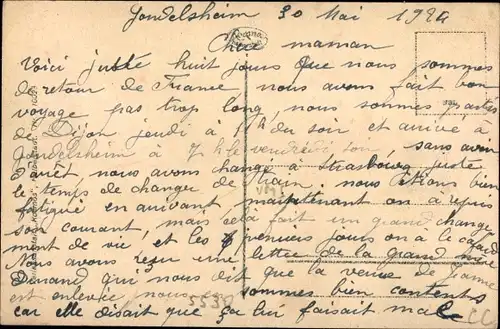 Gondelsheim 30 Mai 1924
Chère maman
Voici juste huit jours que nous sommes
de retour de France, nous avons fait bon
voyage pas trop long, nous sommes parties
de Dijon jeudi à du soir et arrivé à
Gondelsheim à 7 h vendredi soir, sans avoir
nous avons changé à Strasbourg juste
le temps de changer de train, nous étions bien
fatigué en arrivant, maintenant on a repris
son courant, mais cela fait un grand change
ment de vie et les premiers jours on a le cafard
Nous avons reçu une lettre de la grand mère
Durand qui nous dit que la verrue de Jeanne
est enlevée, nous sommes bien contents
car elle disait que ça lui faisait mal